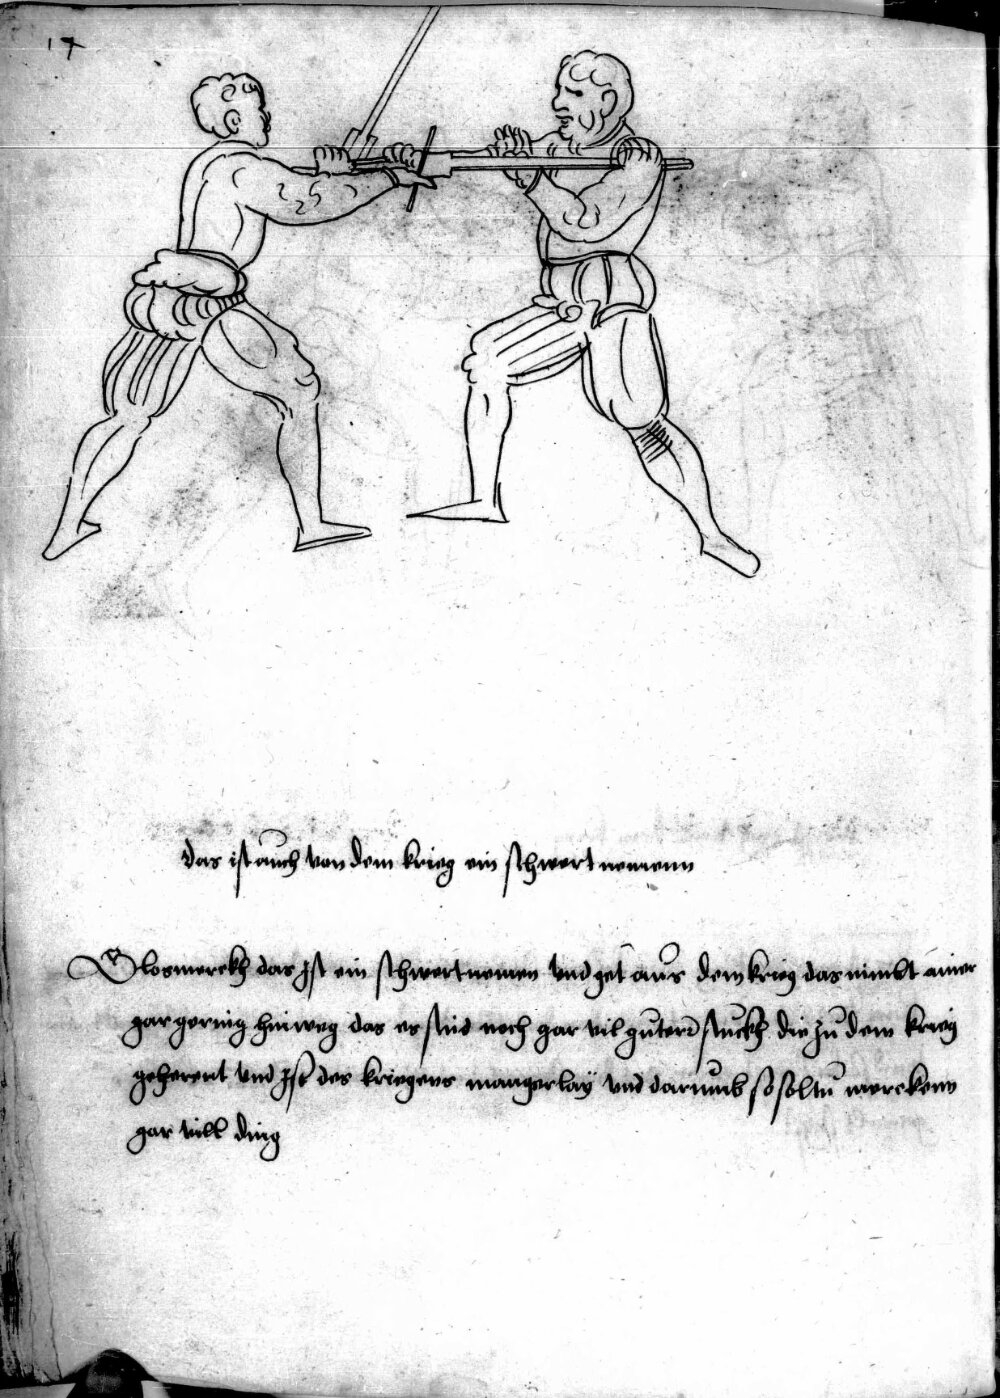 17
das ist auch von dem krieg ein schwert nemenn
Glos merckh das Jst ein schwert nemen vnd get aus dem krieg das nimbt ainer
gar gering hinweg das es sind noch gar vil guter stuckh die zu dem krieg
geherent vnd Jst des kriegens mangerlaÿ vnd darumb so soltu merckenn
gar vill ding